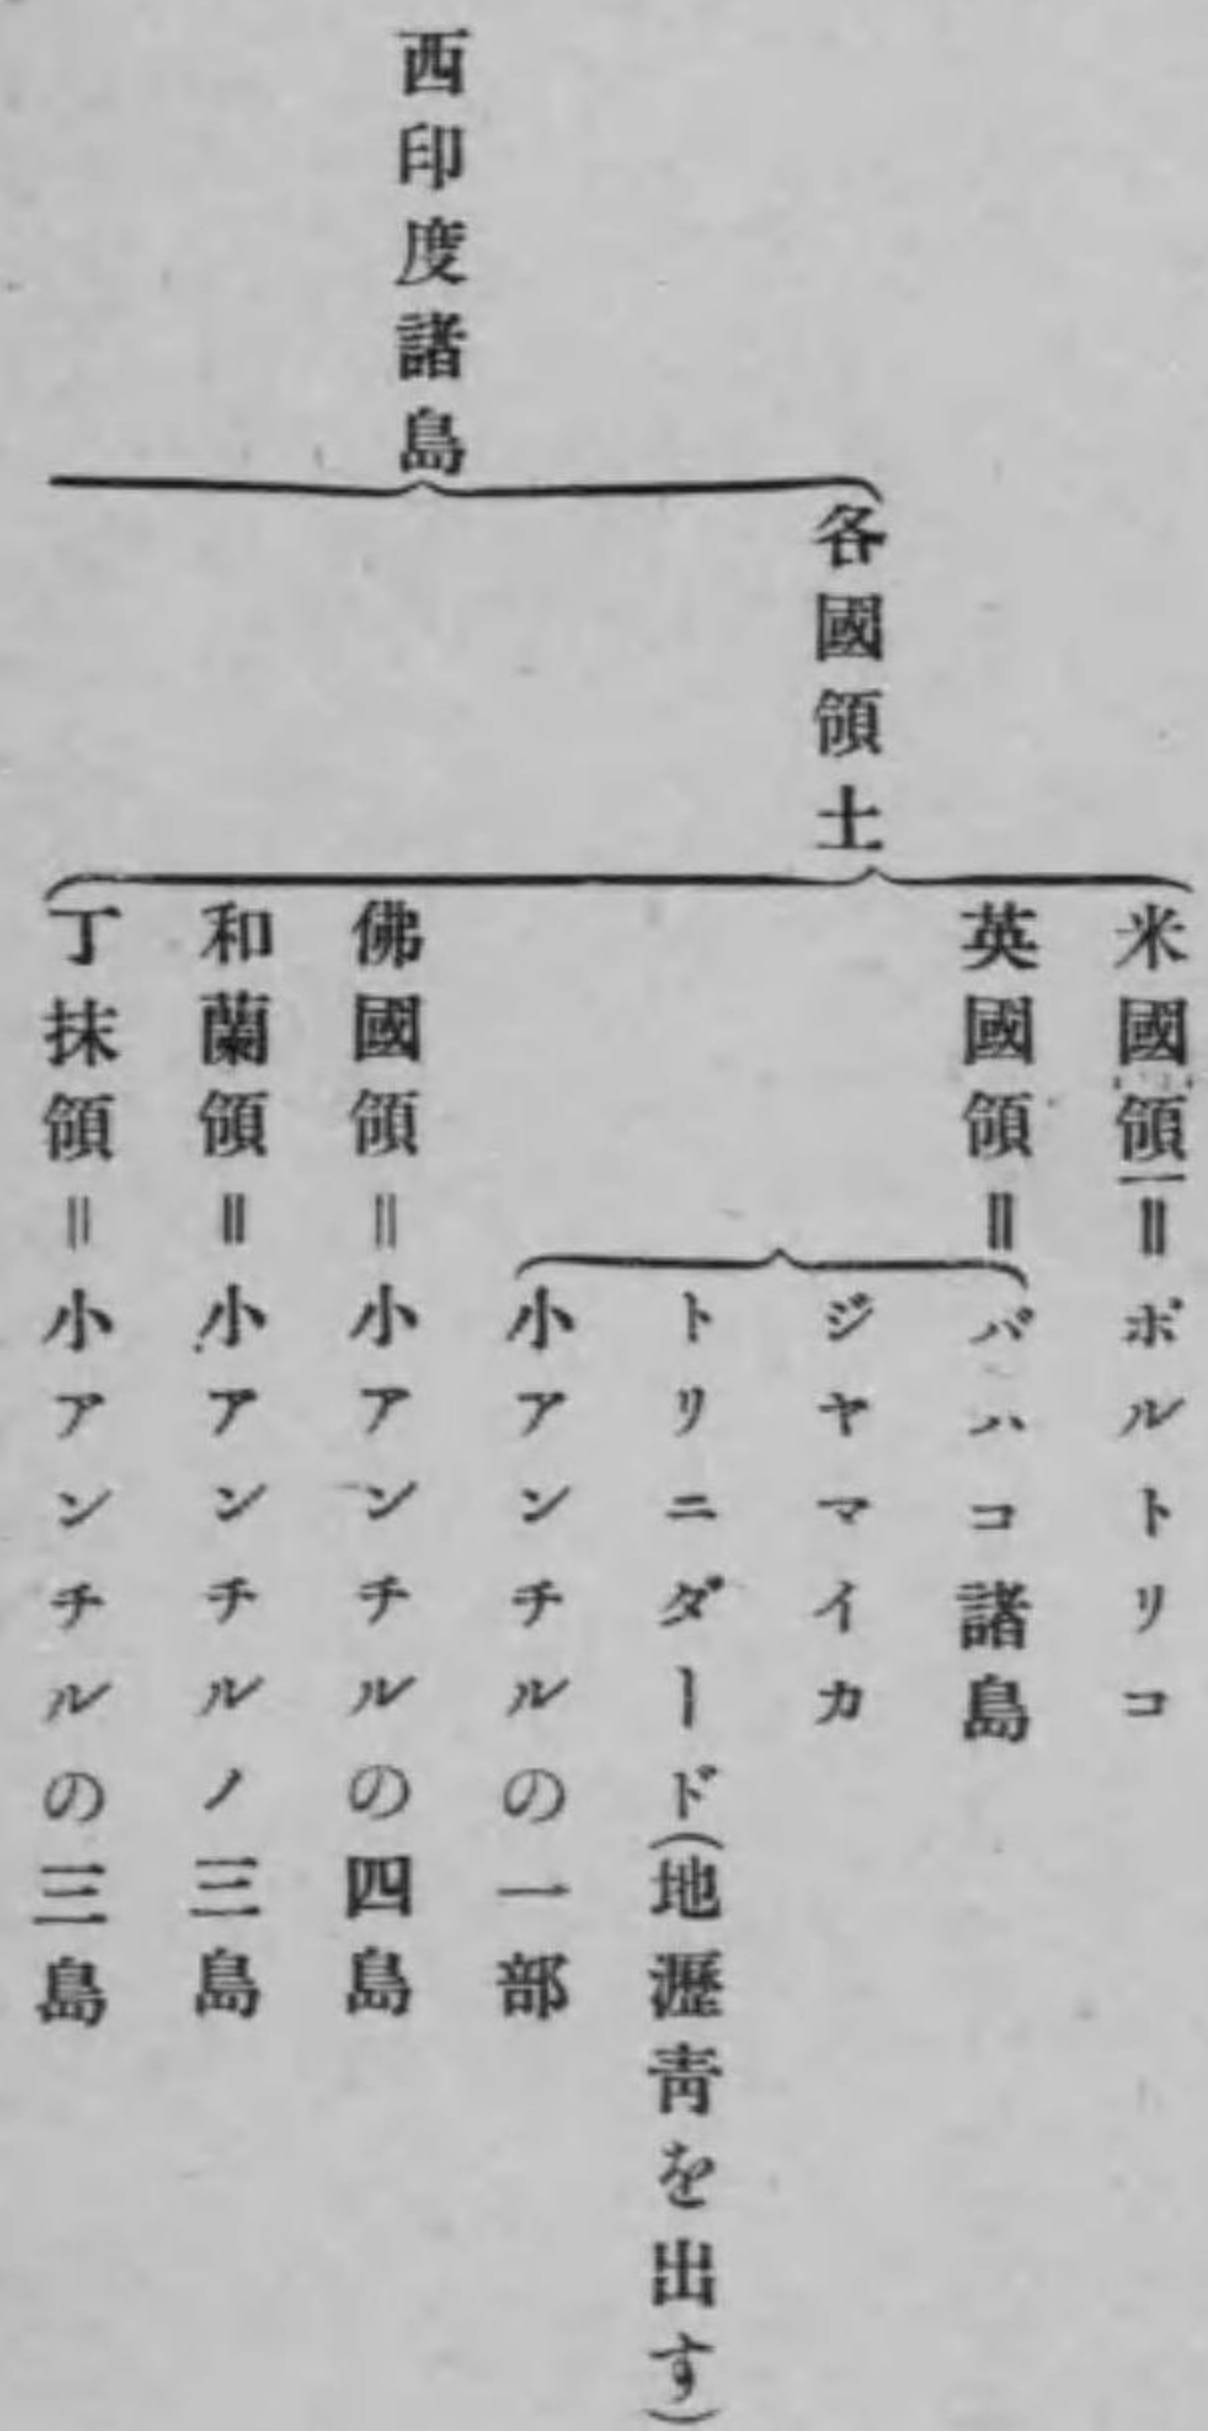 西印度諸島
各國領土
米國領＝ポルトリコ
英國領＝
バハコ諸島
ジヤマイカ
トリニダード(地瀝靑を出す)
小アンチルの一部
佛國領＝小アンチルの四島
和蘭領＝小アンチルノ三島
丁抹領＝小アンチルの三島